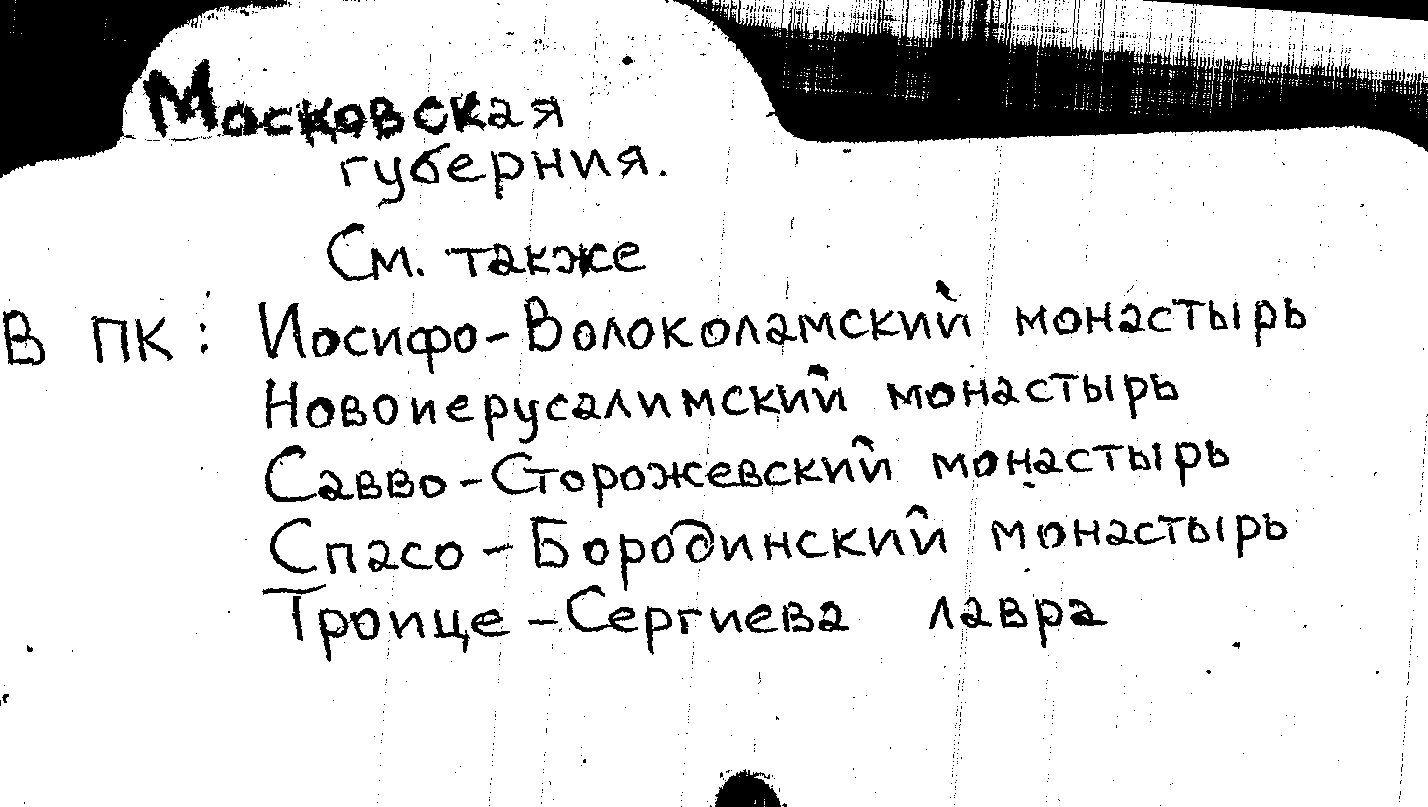 Московская
губерния.
См. также
В ПК: Иосифо-Волоколамский монастырь
Новоиерусалимский монастырь
Савво-Сторожевский монастырь
Спасо-Бородинский монастырь
Троице-Сергиева лавра